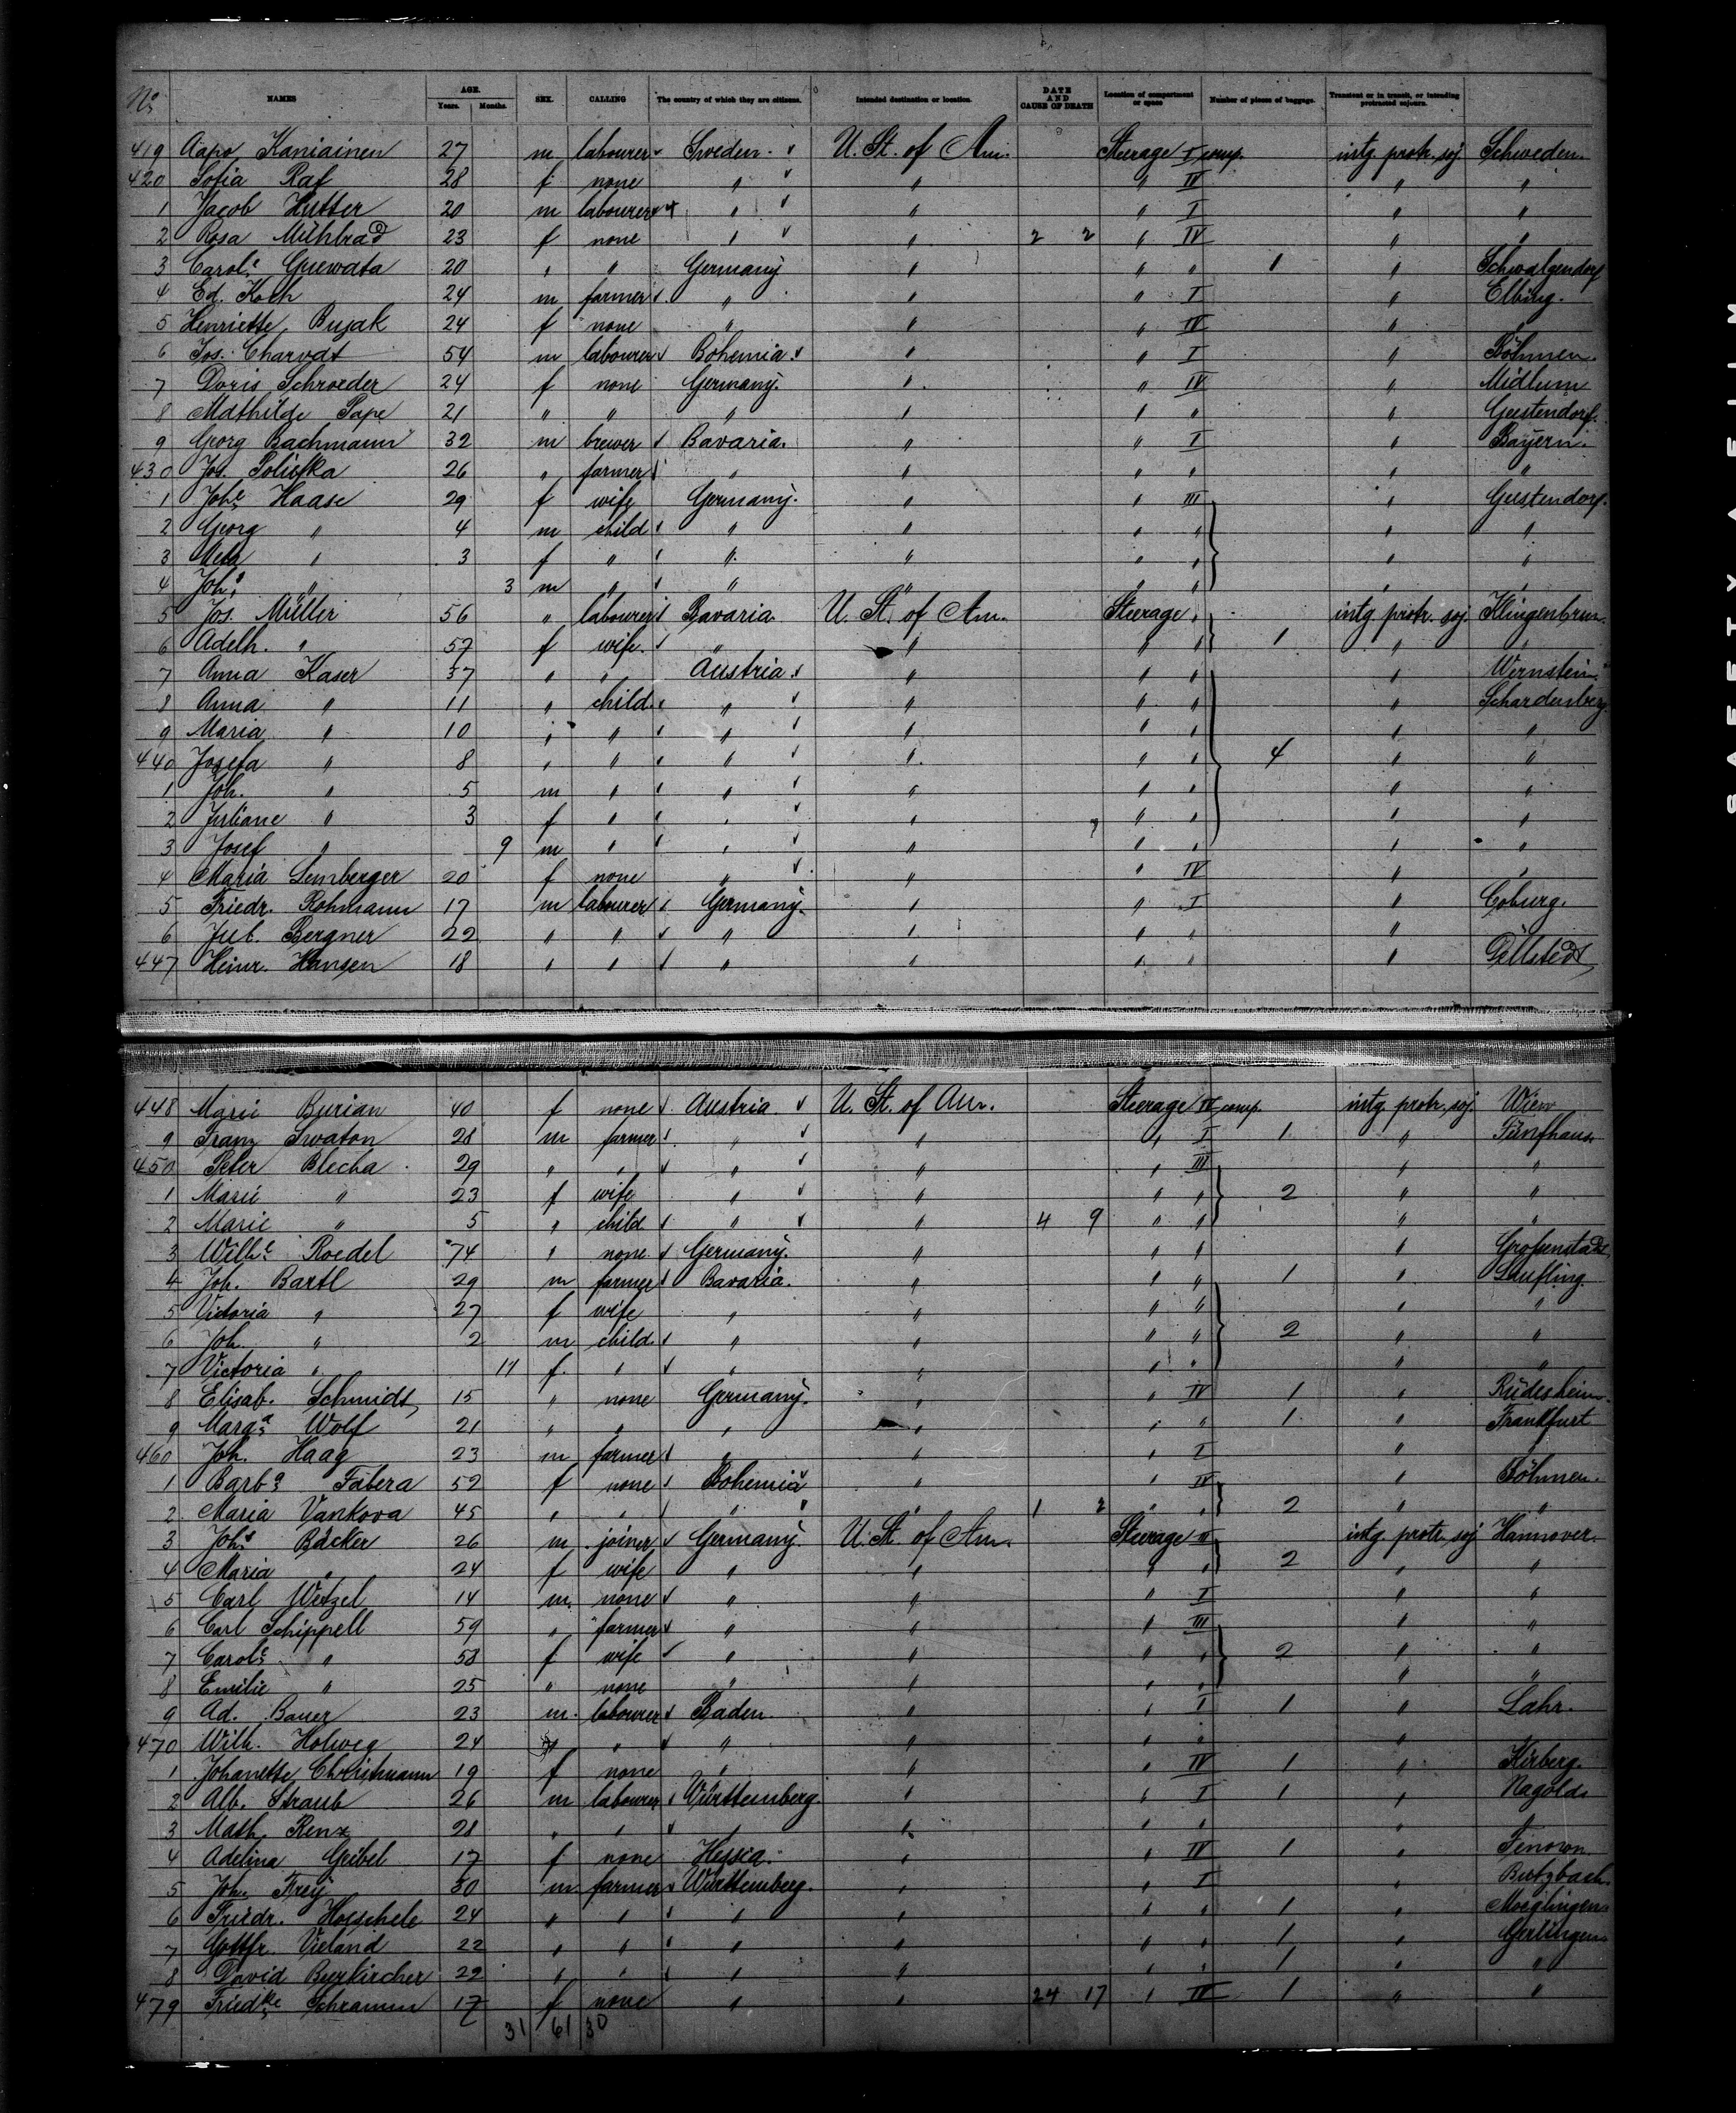 No. NAMES AGE. Years. Months. SEX. CALLING The country of which they are citizens. Intended destination or location. DATE AND CAUSE OF DEATH Location of compartment or space Number of pieces of baggage. Transient or in transit, or intending protracted sojourn.
419 Aapo Kaniainen 27 m labourer Sweden. U. St. of Am. Steerage I comp. intg. protr. soj. Schweden.
420 Sofia Raf 28 f none " " " IV " "
1 Jacob Hutter 20 m labourer " " " I " "
2 Rosa Mühlrad 23 f none " " 2 2 " IV " "
3 Carole. Guewata 20 " " Germany " " " 1 " Schwalgendorf
4 Ed. Koch 24 m farmer " " " I " Elbing.
5 Henriette Bujak 24 f none " " " IV " "
6 Jos. Charvat 54 m labourer Bohemia. " " I " Böhmen.
7 Doris Schroeder 24 f none Germany. " " IV " Midlum
8 Mathilde Pape 21 " " " " " " " Geestendorf.
9 Georg Bachmann 32 m brewer Bavaria. " " I " Bayern.
430 Jos. Polifka 26 " farmer " " " " " "
1 Johe. Haase 29 f wife Germany. " " III " Geestendorf.
2 Georg " 4 m child " " " " " "
3 Meta " 3 f " " " " " " "
4 Johs. " 3 m " " " " " " "
5 Jos. Müller 56 " labourer Bavaria. U. St. of Am. Steerage " intg. protr. soj. Klingenbrun.
6 Adelh. " 57 f wife. " " " " 1 " "
7 Anna Kaser 37 " " Austria. " " " " Wernstein
8 Anna " 11 " child " " " " " Schardenberg
9 Maria " 10 " " " " " " " "
440 Josefa " 8 " " " " " " 4 " "
1 Joh. " 5 m " " " " " " "
2 Juliane " 3 f " " " " " " "
3 Josef " 9 m " " " " " " "
4 Maria Lemberger 20 f none " " " IV " "
5 Friedr. Rohmann 17 m labourer Germany. " " I " Coburg.
6 Jul. Bergner 22 " " " " " " "
447 Heinr. Hansen 18 " " " " " " " Dellstedt
448 Marie Burian 40 f none Austria U. St. of Am. Steerage IV comp. intg. protr. soj. Wien
9 Franz Swaton 28 m farmer " " " I 1 " Fünfhaus
450 Peter Blecha 29 " " " " " III " "
1 Marie " 23 f wife " " " " 2 " "
2 Marie " 5 " child " " 4 9 " " " "
3 Wilhe. Roedel 74 " none Germany. " " " "
4 Joh. Bartl 29 m farmer Bavaria. " " " 1 " Laufling.
5 Victoria " 27 f wife " " " " " "
6 Joh. " 2 m child " " " " 2 " "
7 Victoria " 11 f. " " " " " " "
8 Elisab. Schmidt 15 " none Germany. " " IV 1 " Rüdesheim
9 Marga. Wolf 21 " " " " " " 1 " Frankfurt
460 Joh. Haag 23 m farmer " " " I " "
1 Barba. Fabera 52 f none Bohemia " " IV " Böhmen.
2 Maria Vankova 45 " " " " 1 2 " " 2 " "
3 Johs. Bäcker 26 m joiner Germany U. St. of Am. Steerage III intg. protr. soj. Hannover.
4 Maria " 24 f wife " " " " 2 " "
5 Carl Wetzel 14 m. none " " " I " "
6 Carl Schippell 59 " farmer " " " III " "
7 Carole. " 58 f wife " " " " 2 " "
8 Emilie " 25 " none " " " " " "
9 Ad. Bauer 23 m. labourer Baden " " I 1 " Lahr.
470 Wilh. Holweg 24 " " " " " " "
1 Johanette Christmann 19 f none " " " IV 1 " Kirberg.
2 Alb. Straub 26 m labourer Württemberg. " " I 1 " Nagold.
3 Math. Renz 28 " " " " " " "
4 Adelina Geibel 17 f none Hessia. " " IV 1 "
5 Joh. Frey 30 m farmer Württemberg. " " I " Butzbach.
6 Friedr. Hoeschele 24 " " " " " " 1 " Moeglingen
7 Gottfr. Vieland 22 " " " " " " 1 " Gerlingen
8 David Beerkircher 22 " " " " " " 1 " "
479 Friedke. Schramm 17 f none " " 24 17 " IV 1 " "
31 61 30